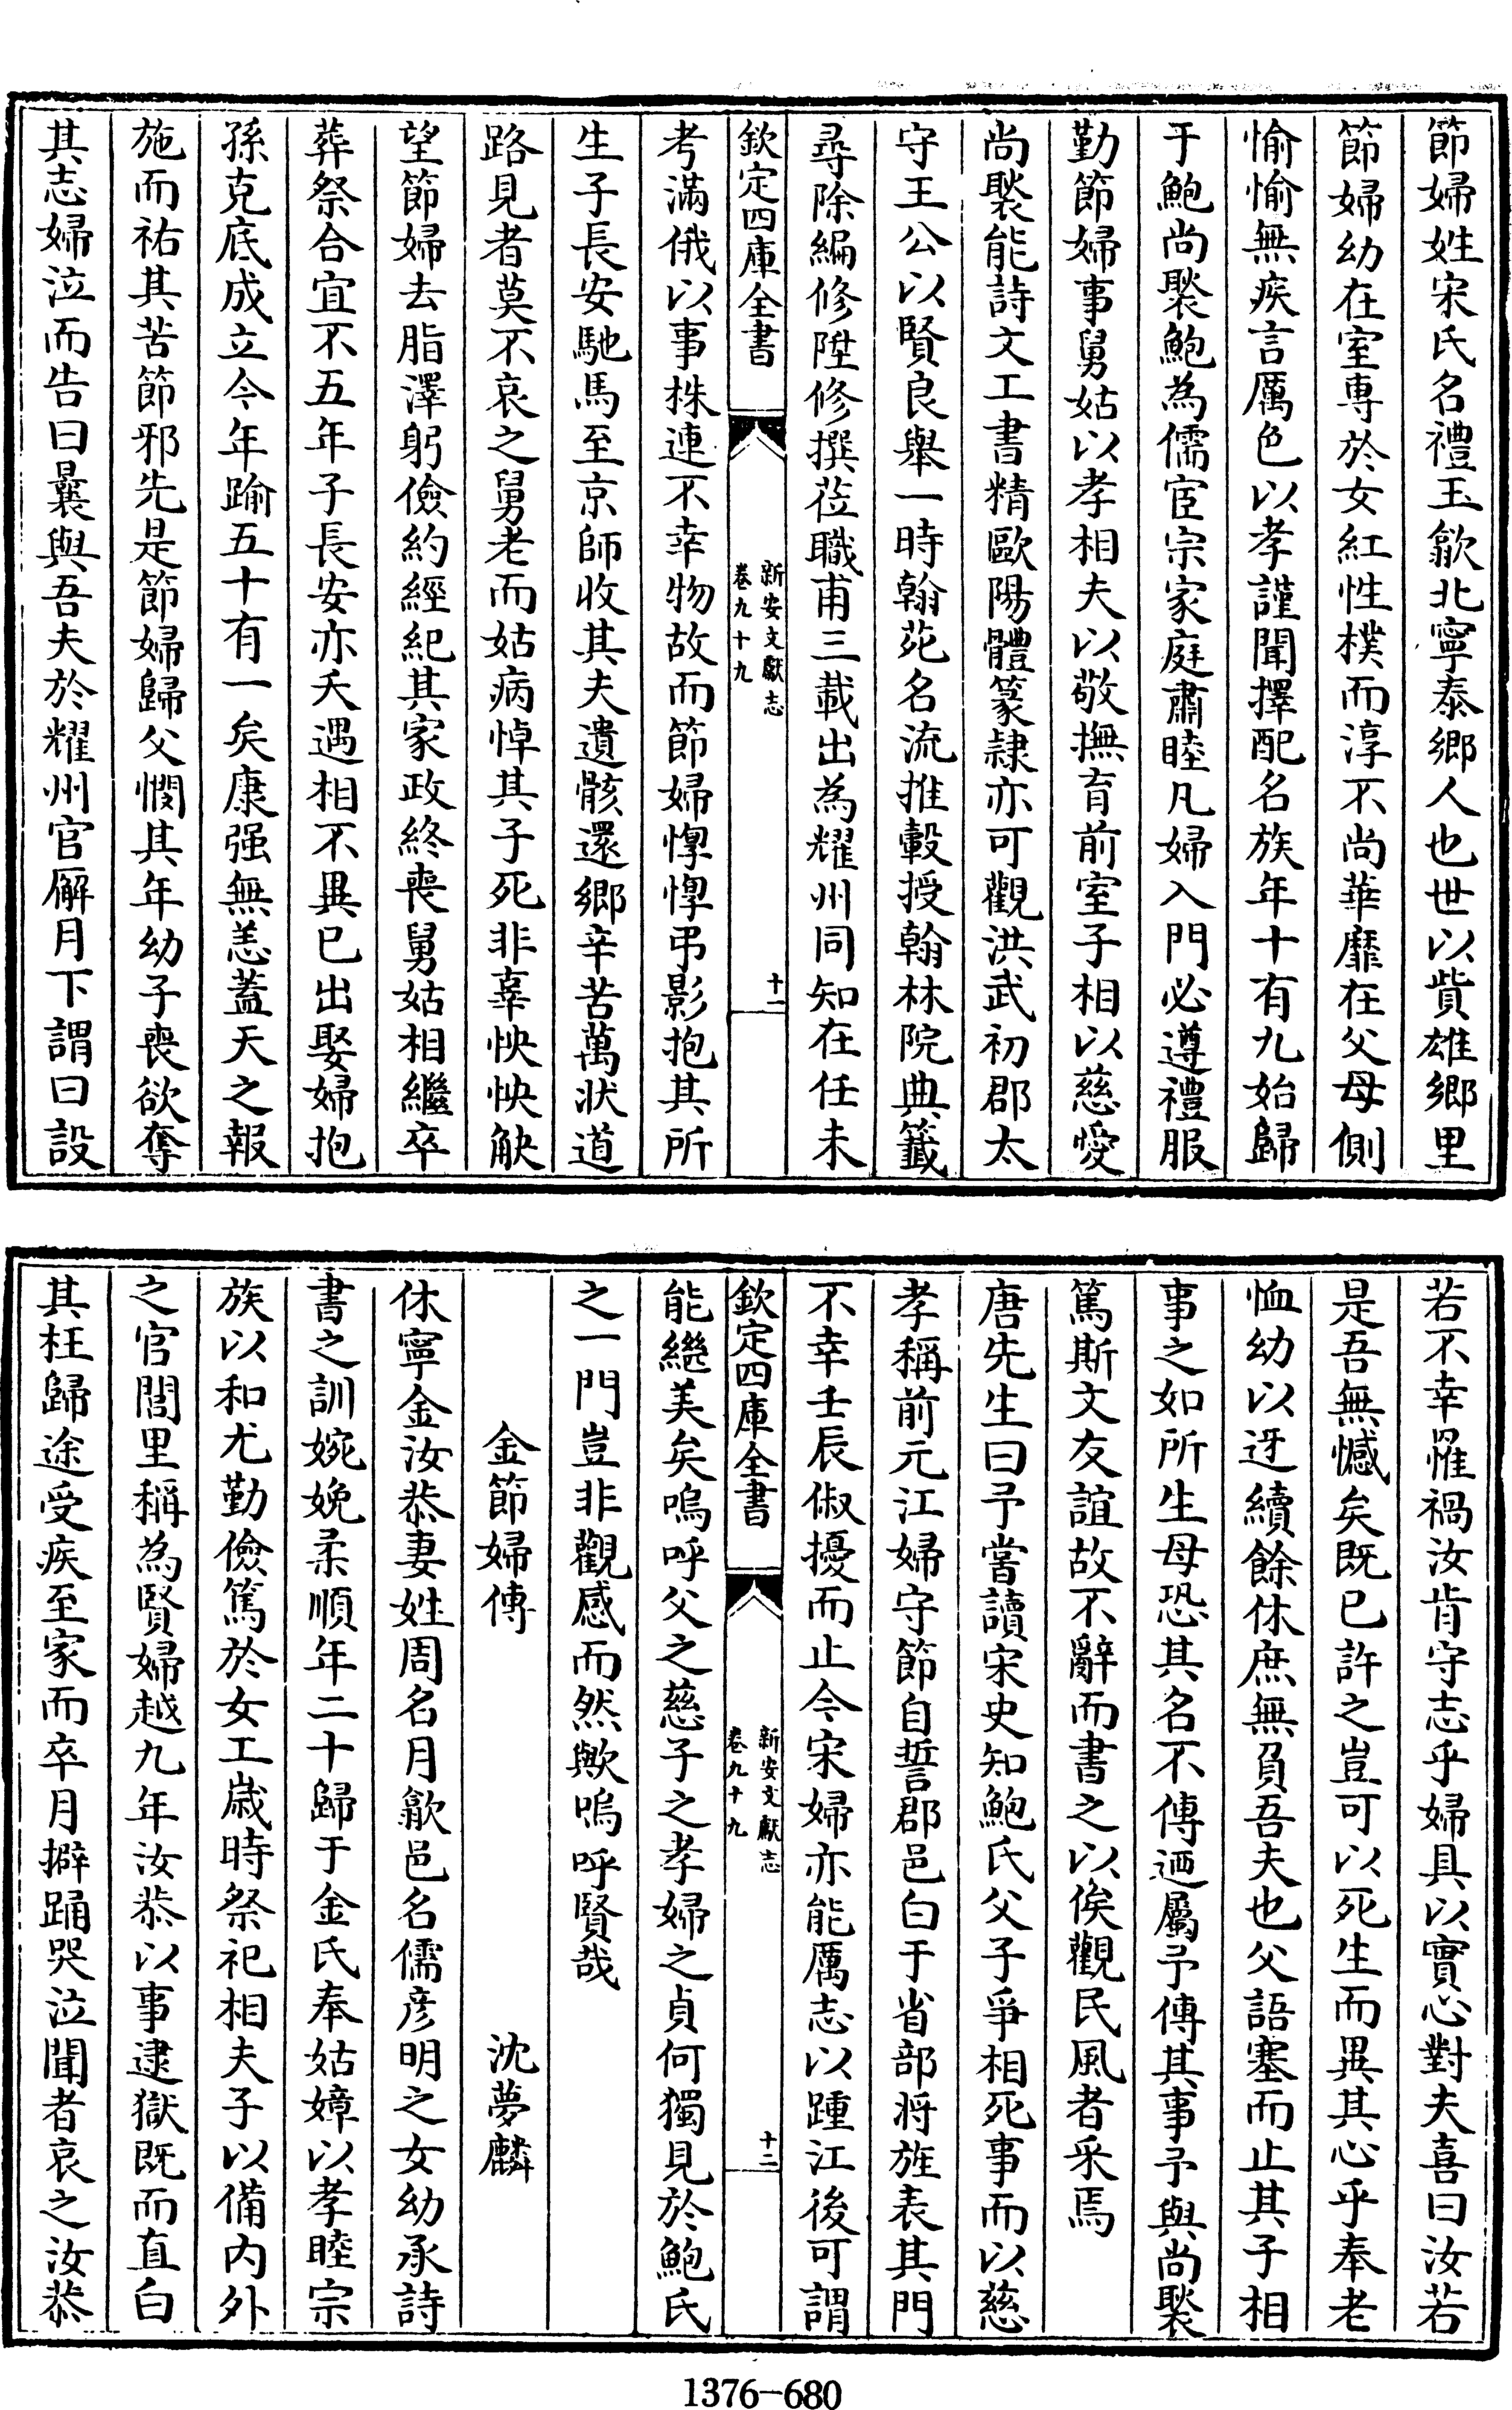 節婦姓宋氏名禮玉歙北寧泰鄉人也世以貲雄鄉里
節婦幼在室專於女紅性樸而淳不尚華靡在父母側
愉愉無疾言厲色以孝謹聞擇配名族年十有九始歸
于鮑尚褧鮑為儒宦宗家庭肅睦凡婦入門必遵禮服
勤節婦事舅姑以孝相夫以敬撫育前室子相以慈愛
尚褧能詩文工書精歐陽體篆隸亦可觀洪武初郡太
守王公以賢良舉一時翰苑名流推轂授翰林院典籤
尋除編修陞修撰蒞職甫三載出為耀州同知在任未
欽定四庫全書
新安文獻志
卷九十九
十一
考滿俄以事株連不幸物故而節婦惸惸弔影抱其所
生子長安馳馬至京師收其夫遺骸還鄉辛苦萬狀道
路見者莫不哀之舅老而姑病悼其子死非辜怏怏觖
望節婦去脂澤躬儉約經紀其家政終喪舅姑相繼卒
葬祭合宜不五年子長安亦夭遇相不異已出娶婦抱
孫克底成立今年踰五十有一矣康强無恙蓋天之報
施而祐其苦節邪先是節婦歸父憫其年幼子喪欲奪
其志婦泣而告曰曩與吾夫於耀州官廨月下謂曰設
若不幸罹禍汝肯守志乎婦具以實心對夫喜曰汝若
是吾無憾矣既已許之豈可以死生而異其心乎奉老
恤幼以迓續餘休庶無負吾夫也父語塞而止其子相
事之如所生母恐其名不傳迺屬予傳其事予與尚褧
篤斯文友誼故不辭而書之以俟觀民風者采焉
唐先生曰予嘗讀宋史知鮑氏父子爭相死事而以慈
孝稱前元江婦守節自誓郡邑白于省部将旌表其門
不幸壬辰俶擾而止今宋婦亦能厲志以踵江後可謂
欽定四庫全書
新安文獻志
卷九十九
十二
能繼美矣嗚呼父之慈子之孝婦之貞何獨見於鮑氏
之一門豈非觀感而然歟嗚呼賢哉
金節婦傳 沈夢麟
休寧金汝恭妻姓周名月歙邑名儒彦明之女幼承詩
書之訓婉娩柔順年二十歸于金氏奉姑嫜以孝睦宗
族以和尤勤儉篤於女工歲時祭祀相夫子以備内外
之官閭里稱為賢婦越九年汝恭以事逮獄既而直白
其枉歸途受疾至家而卒月擗踊哭泣聞者哀之汝恭
1376-680